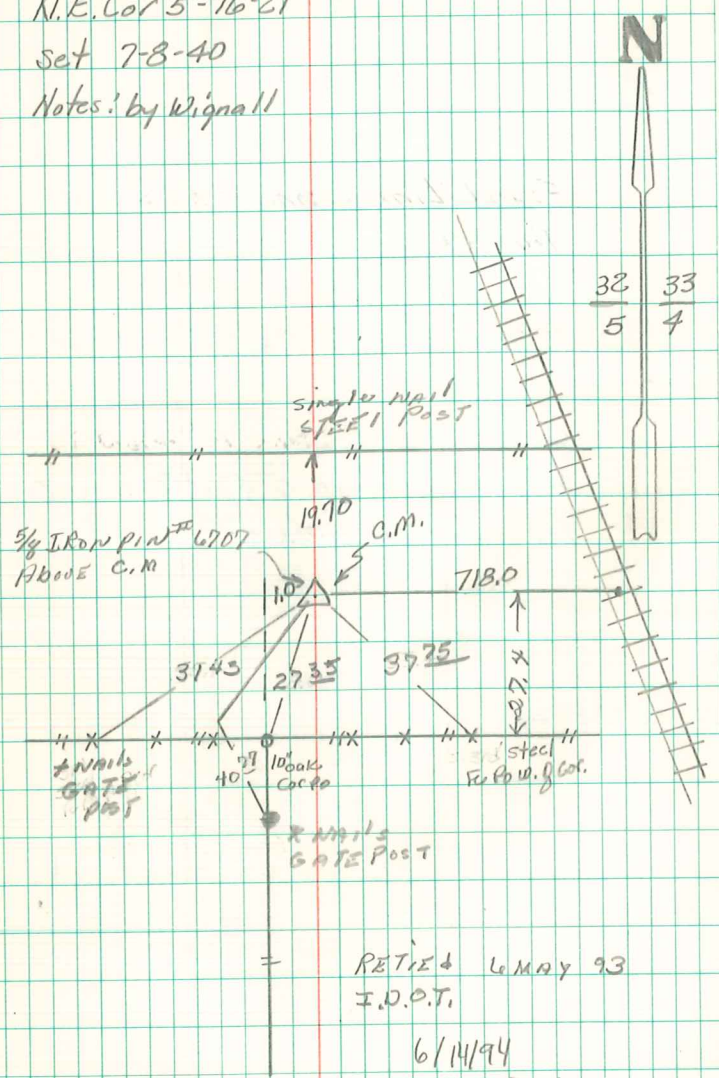 N.E. Cor 5-16-21
Set 7-8-40
Notes: by Wignall
N
32 33
5 4
single NAIL
STEEL POST
19.70
C.M.
5/8 IRON PIN # 6707
Above C.M
1.0
718.0
31 43
27 35
37 75
27. x
x NAILS
GATE
POST
40 77
10" oak
Cor Po
steel
Fc Po W. of Cor.
x NAILS
GATE POST
RETIED 6 MAY 93
I.D.O.T.
6/14/94